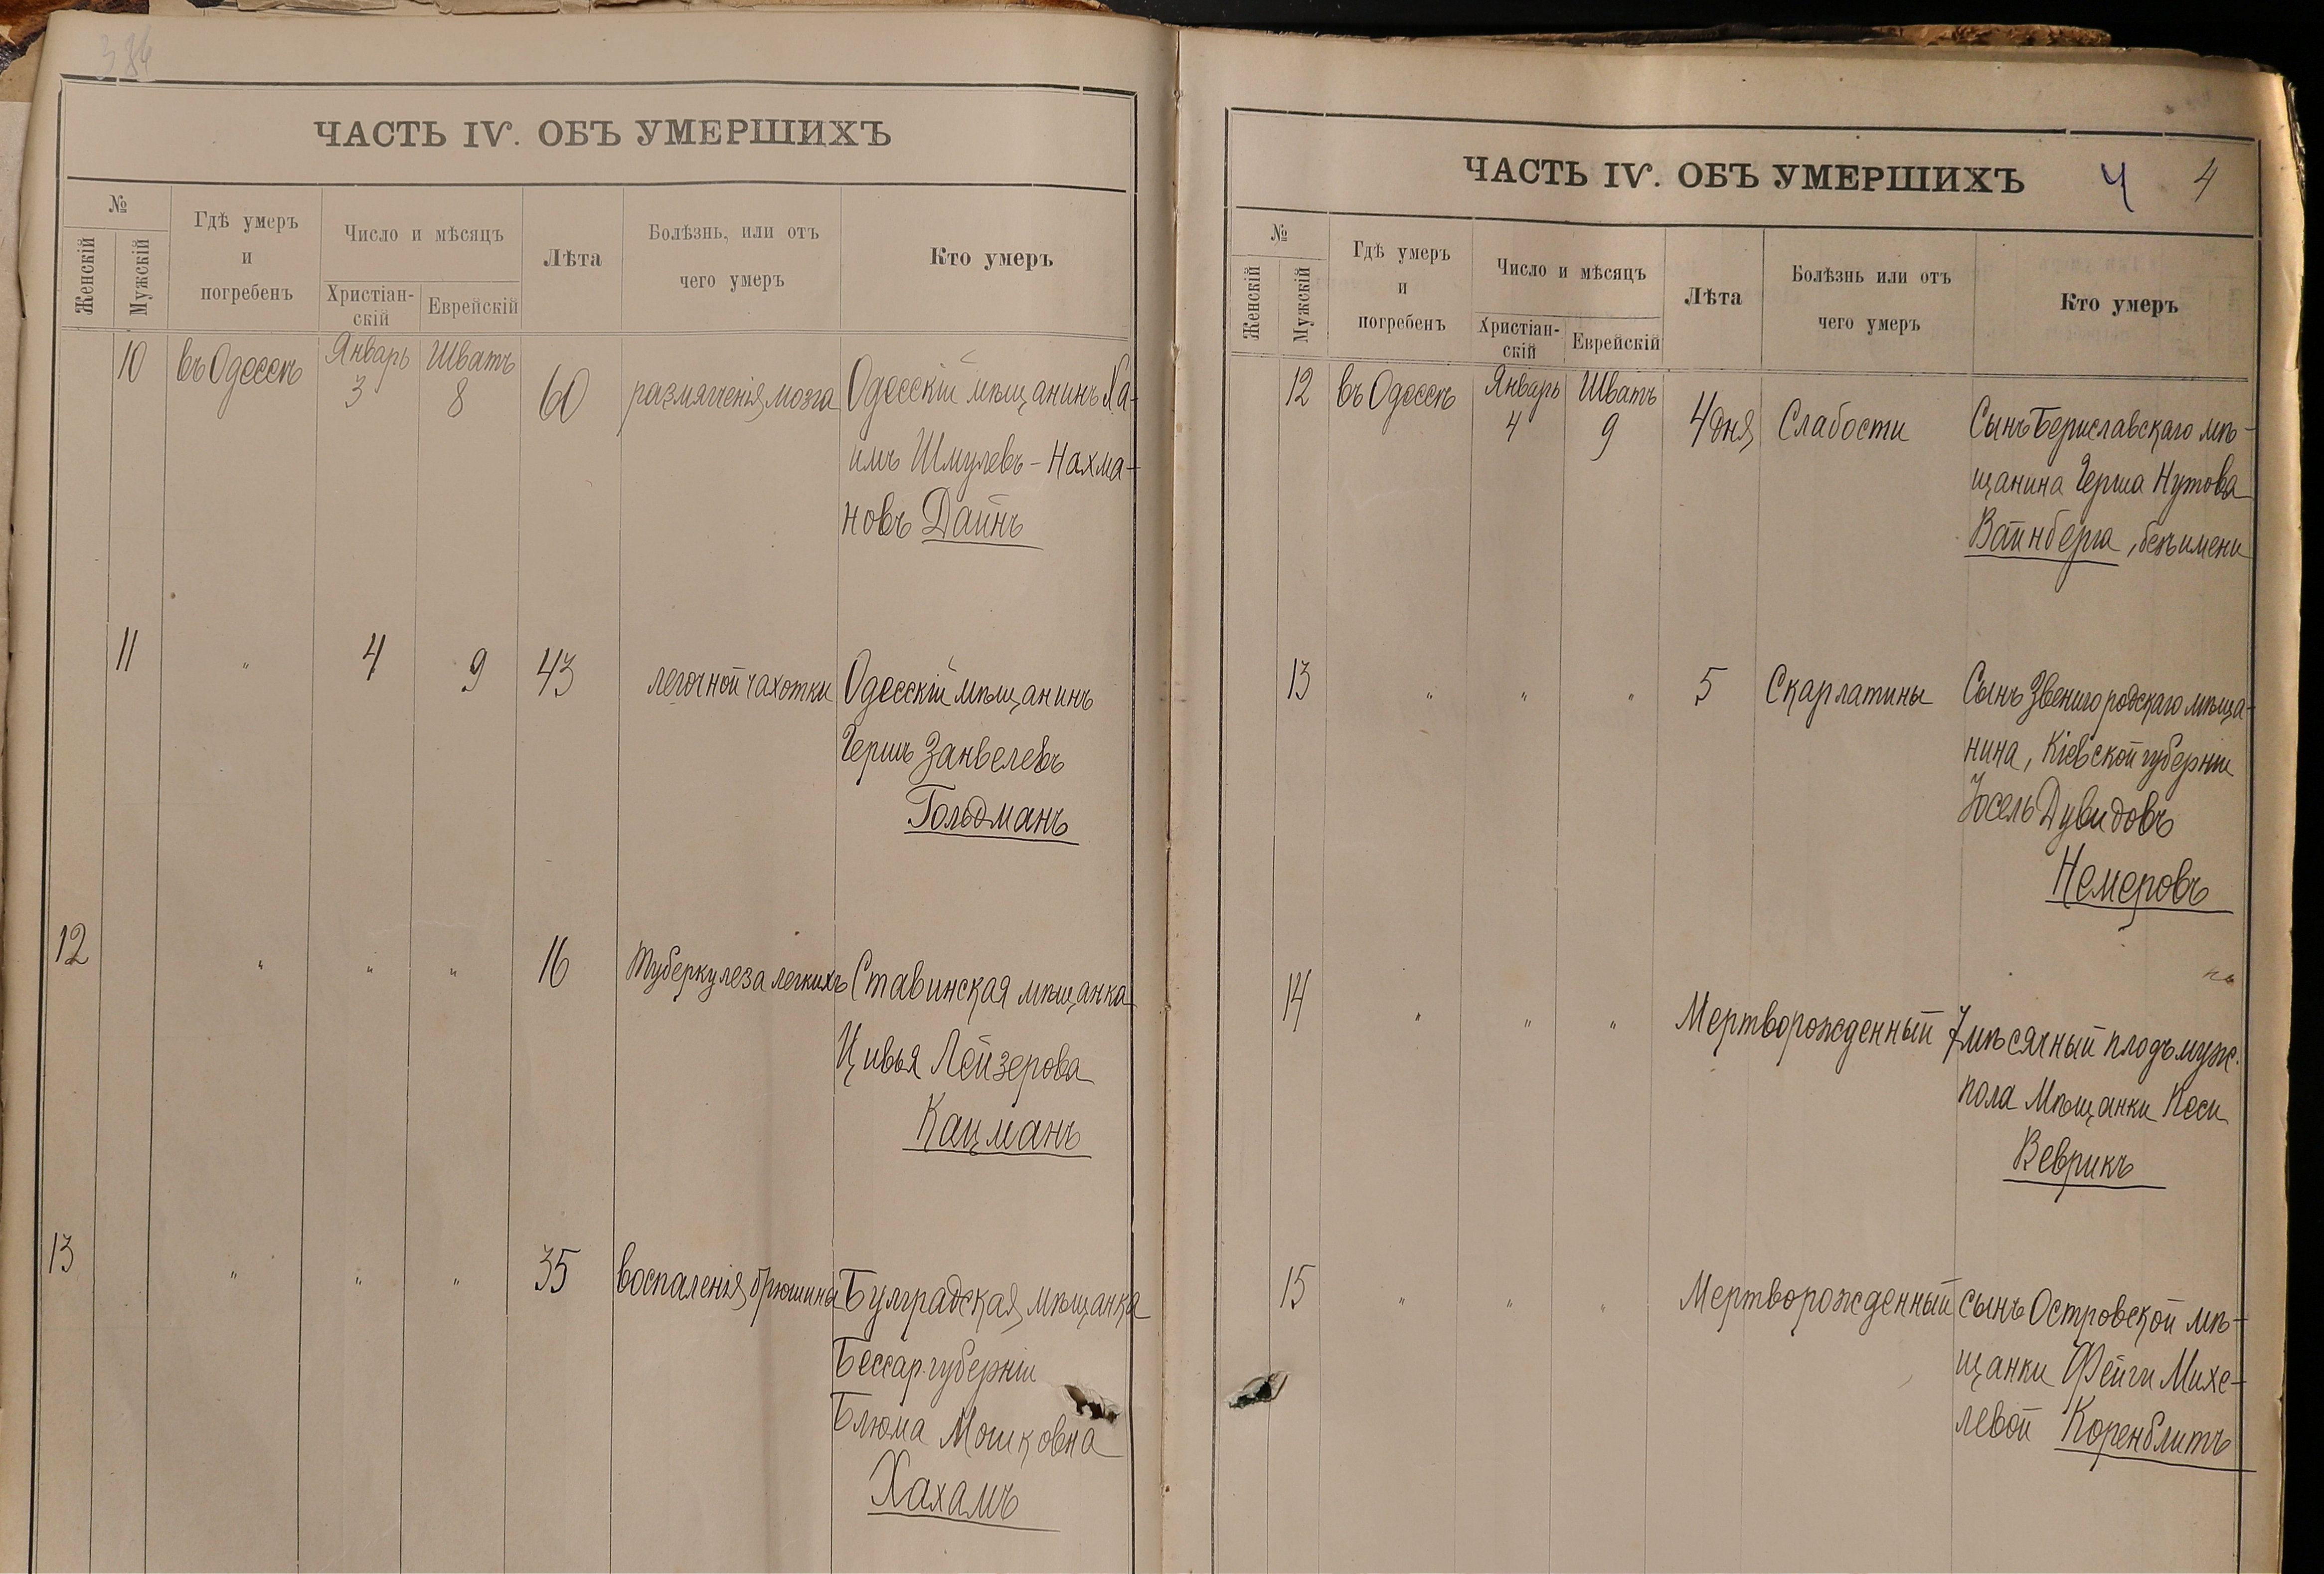 386
ЧАСТЬ IV. ОБЪ УМЕРШИХЪ
№
Женскій
Мужскій
Гдѣ умеръ
и
погребенъ
Число и мѣсяцъ
Христіан-
скій
Еврейскій
Лѣта
Болѣзнь, или отъ
чего умеръ
Кто умеръ
10 въ Одессѣ Январь 3 Шватъ 8 60 размягченія мозга Одесскій мѣщанинъ Ха-
имъ Шмулевъ-Нахма-
новъ Дайнъ
11 " 4 9 43 легочной чахотки Одесскій мѣщанинъ
Гершъ Занвелевъ
Гольдманъ
12 " " " 16 Туберкулеза легкихъ Ставинская мѣщанка
Цивья Лейзерова
Кацманъ
13 " " " 35 воспаленія брюшины Булградская мѣщанка
Бессар. губерніи
Блюма Мошковна
Хахамъ
ЧАСТЬ IV. ОБЪ УМЕРШИХЪ 4 4
№
Женскій
Мужскій
Гдѣ умеръ
и
погребенъ
Число и мѣсяцъ
Христіан-
скій
Еврейскій
Лѣта
Болѣзнь или отъ
чего умеръ
Кто умеръ
12 въ Одессѣ Январь 4 Шватъ 9 4 дня Слабости Сынъ Бериславскаго мѣ-
щанина Герша Нутова
Вайнберга, безъ имени
13 " " " 5 Скарлатины Сынъ Звенигородскаго мѣща-
нина, Кіевской губерніи
Іосель Дувидовъ
Немеровъ
14 " " " Мертворожденный 7 мѣсячный плодъ муж.
пола Мѣщанки Песи
Веврикъ
15 " " " Мертворожденный сынъ Островской мѣ-
щанки Фейги Михе-
левой Коренблитъ